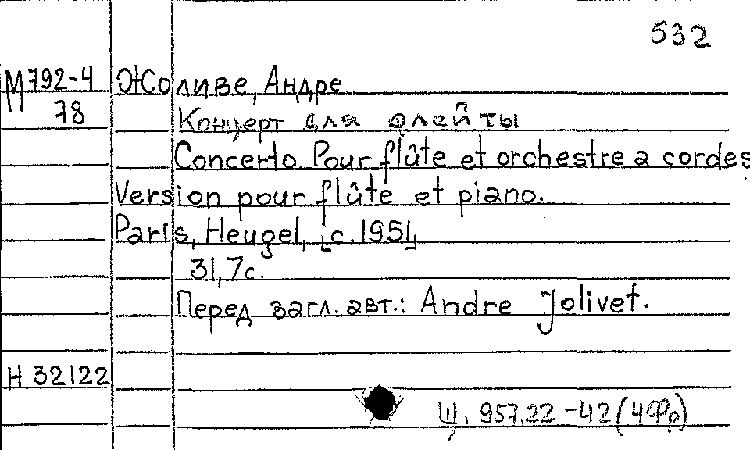 532
М792-4 Жоливе, Андре
78 Концерт для флейты
Concerto Pour flûte et orchestre a cordes
Version pour flûte et piano.
Paris, Heugel, [c. 1951]
31, 7с.
Перед загл. авт.: Andre Jolivet.
Н 32122
Щ. 957.22-42(4Фр)